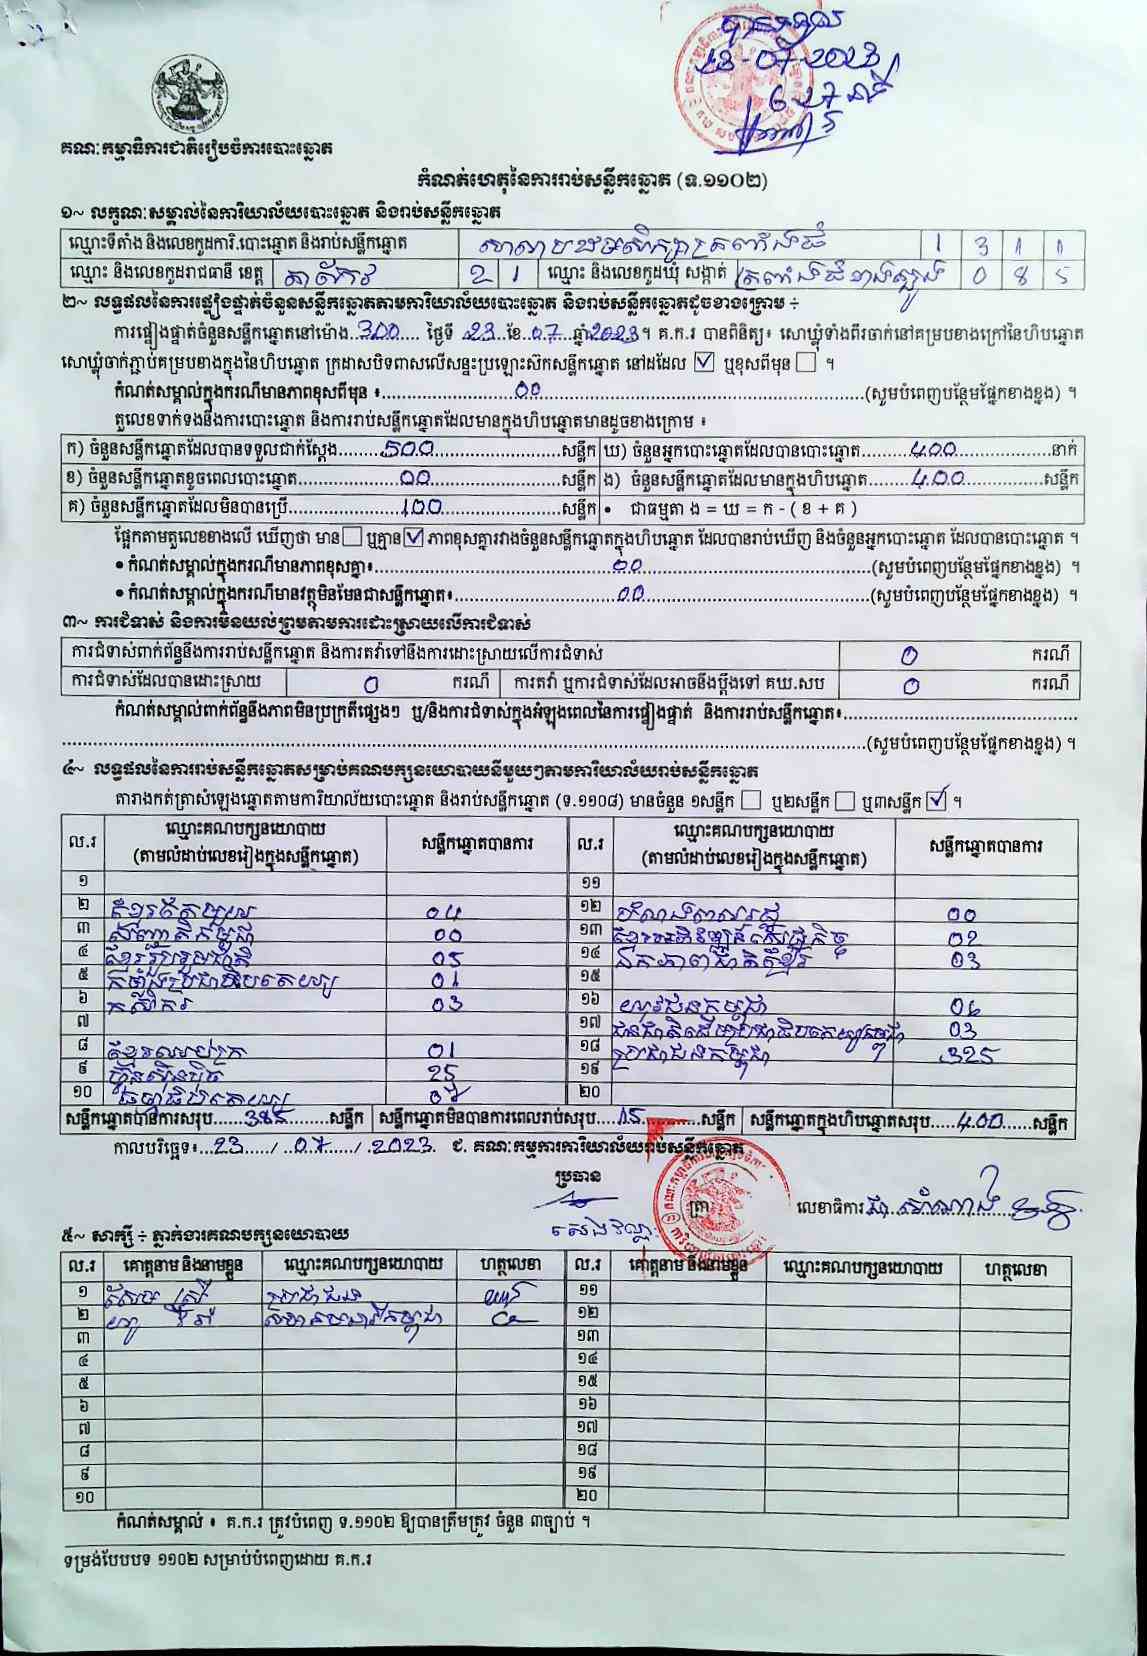 បានទទួល
23-07-2023
គណៈកម្មាធិការជាតិរៀបចំការបោះឆ្នោត
កំណត់ហេតុនៃការរាប់សន្លឹកឆ្នោត (ទ.១១០២)
១~ លក្ខណៈសម្គាល់នៃការិយាល័យបោះឆ្នោត និងរាប់សន្លឹកឆ្នោត
ឈ្មោះទីតាំង និងលេខកូដការិ.បោះឆ្នោត និងរាប់សន្លឹកឆ្នោត សាលាបឋមសិក្សាត្រពាំងធំ 1 3 1 1
ឈ្មោះ និងលេខកូដរាជធានី ខេត្ត តាកែវ 2 1 ឈ្មោះ និងលេខកូដឃុំ សង្កាត់ ត្រពាំងធំខាងត្បូង 0 8 5
២~ លទ្ធផលនៃការផ្ទៀងផ្ទាត់ចំនួនសន្លឹកឆ្នោតតាមការិយាល័យបោះឆ្នោត និងរាប់សន្លឹកឆ្នោតដូចខាងក្រោម ÷
ការផ្ទៀងផ្ទាត់ចំនួនសន្លឹកឆ្នោតនៅម៉ោង..300.... ថ្ងៃទី 23 ខែ 07 ឆ្នាំ 2023។ គ.ក.រ បានពិនិត្យ៖ សោឃ្លុំទាំងពីរចាក់នៅគម្របខាងក្រៅនៃហិបឆ្នោត
សោឃ្លុំចាក់ភ្ជាប់គម្របខាងក្នុងនៃហិបឆ្នោត ក្រដាសបិទពាសលើសន្ទះប្រឡោះស៊កសន្លឹកឆ្នោត នៅដដែល ☑ ឬខុសពីមុន ☐ ។
កំណត់សម្គាល់ក្នុងករណីមានភាពខុសពីមុន ៖ 00 (សូមបំពេញបន្ថែមផ្នែកខាងខ្នង) ។
តួលេខទាក់ទងនឹងការបោះឆ្នោត និងការរាប់សន្លឹកឆ្នោតដែលមានក្នុងហិបឆ្នោតមានដូចខាងក្រោម ៖
ក) ចំនួនសន្លឹកឆ្នោតដែលបានទទួលជាក់ស្តែង 500 សន្លឹក ឃ) ចំនួនអ្នកបោះឆ្នោតដែលបានបោះឆ្នោត 400 នាក់
ខ) ចំនួនសន្លឹកឆ្នោតខូចពេលបោះឆ្នោត 00 សន្លឹក ង) ចំនួនសន្លឹកឆ្នោតដែលមានក្នុងហិបឆ្នោត 400 សន្លឹក
គ) ចំនួនសន្លឹកឆ្នោតដែលមិនបានប្រើ 100 សន្លឹក • ជាធម្មតា ង = ឃ = ក - ( ខ + គ )
ផ្អែកតាមតួលេខខាងលើ ឃើញថា មាន ☐ ឬគ្មាន ☑ ភាពខុសគ្នារវាងចំនួនសន្លឹកឆ្នោតក្នុងហិបឆ្នោត ដែលបានរាប់ឃើញ និងចំនួនអ្នកបោះឆ្នោត ដែលបានបោះឆ្នោត ។
• កំណត់សម្គាល់ក្នុងករណីមានភាពខុសគ្នា៖ 00 (សូមបំពេញបន្ថែមផ្នែកខាងខ្នង) ។
• កំណត់សម្គាល់ក្នុងករណីមានវត្ថុមិនមែនជាសន្លឹកឆ្នោត៖ 00 (សូមបំពេញបន្ថែមផ្នែកខាងខ្នង) ។
៣~ ការជំទាស់ និងការមិនយល់ព្រមតាមការដោះស្រាយលើការជំទាស់
ការជំទាស់ពាក់ព័ន្ធនឹងការរាប់សន្លឹកឆ្នោត និងការតវ៉ាទៅនឹងការដោះស្រាយលើការជំទាស់ 0 ករណី
ការជំទាស់ដែលបានដោះស្រាយ 0 ករណី ការតវ៉ា ឬការជំទាស់ដែលអាចនឹងប្តឹងទៅ គឃ.សប 0 ករណី
កំណត់សម្គាល់ពាក់ព័ន្ធនឹងភាពមិនប្រក្រតីផ្សេងៗ ឬ/និងការជំទាស់ក្នុងអំឡុងពេលនៃការផ្ទៀងផ្ទាត់ និងការរាប់សន្លឹកឆ្នោត៖
(សូមបំពេញបន្ថែមផ្នែកខាងខ្នង) ។
៤~ លទ្ធផលនៃការរាប់សន្លឹកឆ្នោតសម្រាប់គណបក្សនយោបាយនីមួយៗតាមការិយាល័យរាប់សន្លឹកឆ្នោត
តារាងកត់ត្រាសំឡេងឆ្នោតតាមការិយាល័យបោះឆ្នោត និងរាប់សន្លឹកឆ្នោត (ទ.១១០៨) មានចំនួន ១សន្លឹក ☐ ឬ២សន្លឹក ☐ ឬ៣សន្លឹក ☑ ។
ល.រ ឈ្មោះគណបក្សនយោបាយ (តាមលំដាប់លេខរៀងក្នុងសន្លឹកឆ្នោត) សន្លឹកឆ្នោតបានការ ល.រ ឈ្មោះគណបក្សនយោបាយ (តាមលំដាប់លេខរៀងក្នុងសន្លឹកឆ្នោត) សន្លឹកឆ្នោតបានការ
១ ១១
២ ខ្មែរតែមួយ 04 ១២ សំណងពលរដ្ឋ 00
៣ សញ្ជាតិកម្ពុជា 00 ១៣ ខ្មែរអភិវឌ្ឍន៍សេដ្ឋកិច្ច 02
៤ ខ្មែររួបរួមជាតិ 05 ១៤ ឯកភាពជាតិខ្មែរ 03
៥ កម្លាំងប្រជាធិបតេយ្យ 01 ១៥
៦ កសិករ 03 ១៦ យុវជនកម្ពុជា 06
៧ ១៧ ជនជាតិដើមប្រជាធិបតេយ្យកម្ពុជា 03
៨ ខ្មែរឈប់ក្រ 01 ១៨ ប្រជាជនកម្ពុជា 325
៩ ហ៊្វុនស៊ិនប៉ិច 25 ១៩
១០ ធម្មាធិបតេយ្យ 20
សន្លឹកឆ្នោតបានការសរុប 385 សន្លឹក សន្លឹកឆ្នោតមិនបានការពេលរាប់សរុប 15 សន្លឹក សន្លឹកឆ្នោតក្នុងហិបឆ្នោតសរុប 400 សន្លឹក
កាលបរិច្ឆេទ៖ 23 / 07 / 2023. ជ. គណៈកម្មការការិយាល័យរាប់សន្លឹកឆ្នោត
ប្រធាន
ត្រា លេខាធិការ
៥~ សាក្សី ÷ ភ្នាក់ងារគណបក្សនយោបាយ
ល.រ គោត្តនាម និងនាមខ្លួន ឈ្មោះគណបក្សនយោបាយ ហត្ថលេខា ល.រ គោត្តនាម និងនាមខ្លួន ឈ្មោះគណបក្សនយោបាយ ហត្ថលេខា
១ ប្រជាជន ១១
២ ១២
៣ ១៣
៤ ១៤
៥ ១៥
៦ ១៦
៧ ១៧
៨ ១៨
៩ ១៩
១០ ២០
កំណត់សម្គាល់ ៖ គ.ក.រ ត្រូវបំពេញ ទ.១១០២ ឱ្យបានត្រឹមត្រូវ ចំនួន ៣ច្បាប់ ។
ទម្រង់បែបបទ ១១០២ សម្រាប់បំពេញដោយ គ.ក.រ